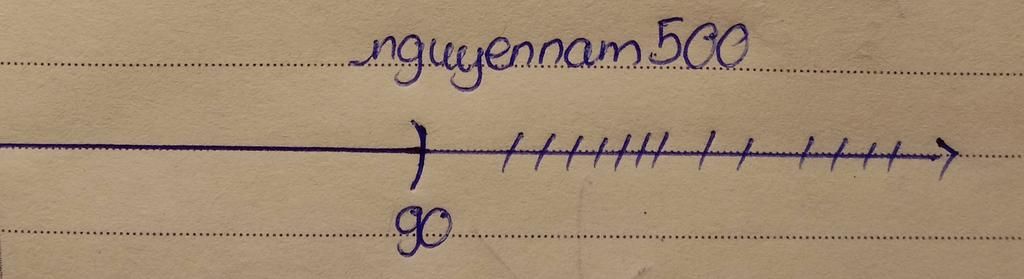 nguyennam500
90